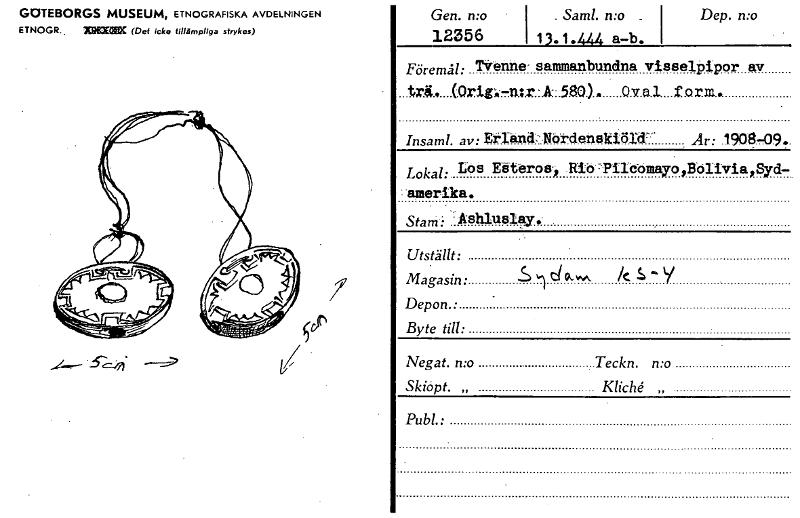 GÖTEBORGS MUSEUM, ETNOGRAFISKA AVDELNINGEN
ETNOGR. (Det icke tillämpliga strykes)
5cm
5cm
Gen. n:o Saml. n:o Dep. n:o
12356 13.1.444 a-b.
Föremål: Tvenne sammanbundna visselpipor av
trä. (Orig.-n:r A 580). Oval form.
Insaml. av: Erland Nordenskiöld År: 1908-09.
Lokal: Los Esteros, Rio Pilcomayo,Bolivia,Syd-
amerika.
Stam: Ashluslay.
Utställt:
Magasin: Sydam
Depon.:
Byte till:
Negat. n:o Teckn. n:o
Skiopt. „ Kliché „
Publ.: